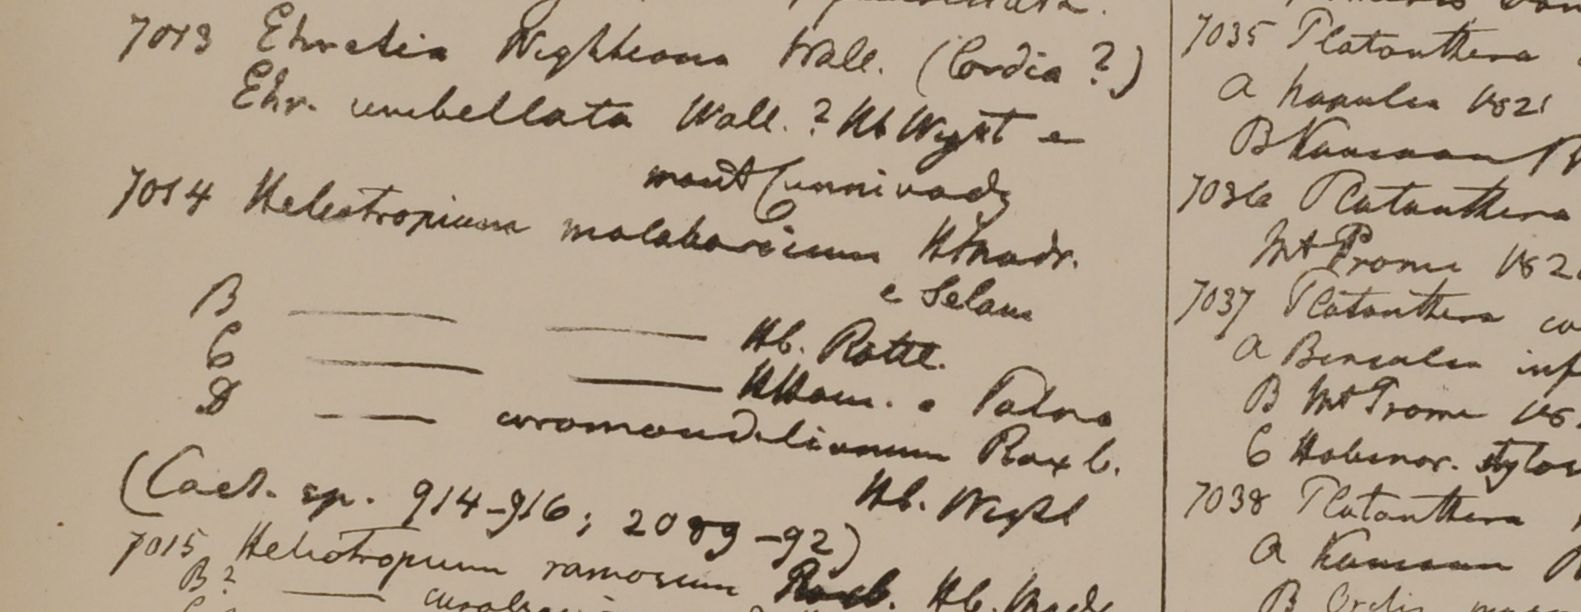 7013 Ehretia Wightiana Wall. (Cordia ?)
Ehr. umbellata Wall. ? Hb Wight e
mont Cunnivady
7014 Heliotropium malabaricum HbMadr.
e Selam
B ——— ——— Hb. Rottl.
C ——— ——— HHam. e Patna
D —— coromandelianum Roxb.
Hb. Wight
(Caet. sp. 914-916; 2089-92)
7015 Heliotropium ramosum Roxb. Hb. Madr
B? ———
7035 Platanthera
a 1821
B
7036 Platanthera
Mt Prome 182
7037 Platanthera
a inf
B Mt Prome 18
C Habenar.
7038 Platanthera
a
B